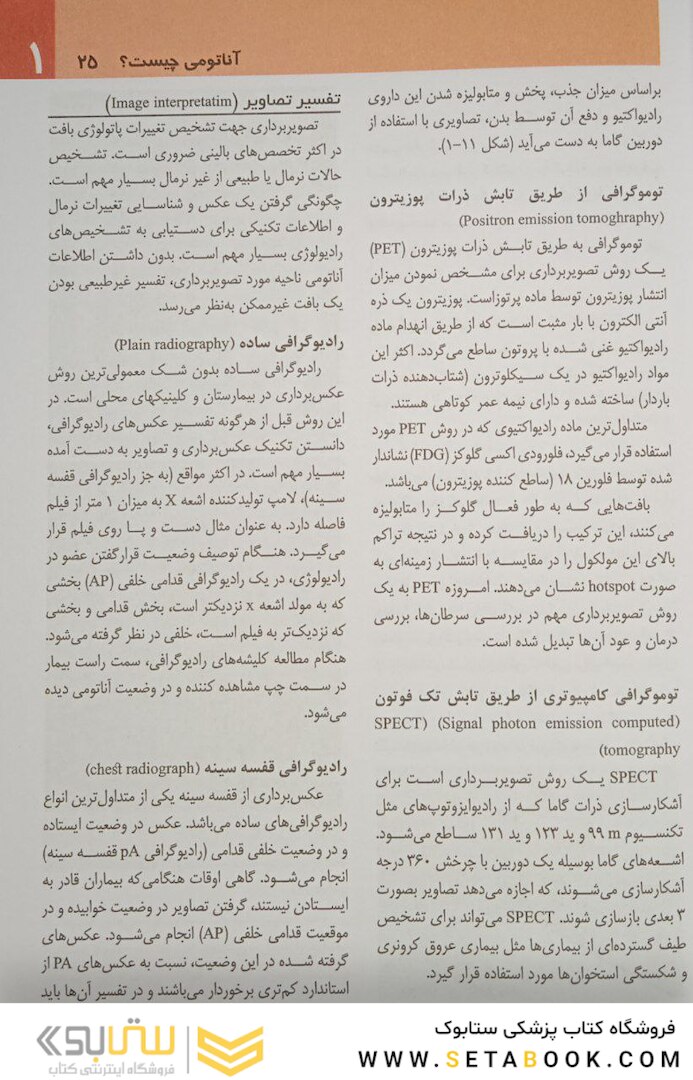 آناتومی چیست؟ ۲۵ ۱
براساس میزان جذب، پخش و متابولیزه شدن این داروی
رادیواکتیو و دفع آن توسط بدن، تصاویری با استفاده از
دوربین گاما به دست می‌آید (شکل ۱۱-۱).
توموگرافی از طریق تابش ذرات پوزیترون
(Positron emission tomoghraphy)
توموگرافی به طریق تابش ذرات پوزیترون (PET)
یک روش تصویربرداری برای مشخص نمودن میزان
انتشار پوزیترون توسط ماده پرتوزاست. پوزیترون یک ذره
آنتی الکترون با بار مثبت است که از طریق انهدام ماده
رادیواکتیو غنی شده با پروتون ساطع می‌گردد. اکثر این
مواد رادیواکتیو در یک سیکلوترون (شتاب‌دهنده ذرات
باردار) ساخته شده و دارای نیمه عمر کوتاهی هستند.
متداول‌ترین ماده رادیواکتیوی که در روش PET مورد
استفاده قرار می‌گیرد، فلورودی اکسی گلوکز (FDG) نشاندار
شده توسط فلورین ۱۸ (ساطع کننده پوزیترون) می‌باشد.
بافت‌هایی که به طور فعال گلوکز را متابولیزه
می‌کنند، این ترکیب را دریافت کرده و در نتیجه تراکم
بالای این مولکول را در مقایسه با انتشار زمینه‌ای به
صورت hotspot نشان می‌دهند. امروزه PET به یک
روش تصویربرداری مهم در بررسی سرطان‌ها، بررسی
درمان و عود آن‌ها تبدیل شده است.
توموگرافی کامپیوتری از طریق تابش تک فوتون
SPECT) (Signal photon emission computed)
(tomography
SPECT یک روش تصویربرداری است برای
آشکارسازی ذرات گاما که از رادیوایزوتوپ‌های مثل
تکنسیوم ۹۹ m و ید ۱۲۳ و ید ۱۳۱ ساطع می‌شود.
اشعه‌های گاما بوسیله یک دوربین با چرخش ۳۶۰ درجه
آشکارسازی می‌شوند، که اجازه می‌دهد تصاویر بصورت
۳ بعدی بازسازی شوند. SPECT می‌تواند برای تشخیص
طیف گسترده‌ای از بیماری‌ها مثل بیماری عروق کرونری
و شکستگی استخوان‌ها مورد استفاده قرار گیرد.
تفسیر تصاویر (Image interpretatim)
تصویربرداری جهت تشخیص تغییرات پاتولوژی بافت
در اکثر تخصص‌های بالینی ضروری است. تشخیص
حالات نرمال یا طبیعی از غیر نرمال بسیار مهم است.
چگونگی گرفتن یک عکس و شناسایی تغییرات نرمال
و اطلاعات تکنیکی برای دستیابی به تشخیص‌های
رادیولوژی بسیار مهم است. بدون داشتن اطلاعات
آناتومی ناحیه مورد تصویربرداری، تفسیر غیرطبیعی بودن
یک بافت غیرممکن به‌نظر می‌رسد.
رادیوگرافی ساده (Plain radiography)
رادیوگرافی ساده بدون شک معمولی‌ترین روش
عکس‌برداری در بیمارستان و کلینیکهای محلی است. در
این روش قبل از هرگونه تفسیر عکس‌های رادیوگرافی،
دانستن تکنیک عکس‌برداری و تصاویر به دست آمده
بسیار مهم است. در اکثر مواقع (به جز رادیوگرافی قفسه
سینه)، لامپ تولیدکننده اشعه X به میزان ۱ متر از فیلم
فاصله دارد. به عنوان مثال دست و پا روی فیلم قرار
می‌گیرد. هنگام توصیف وضعیت قرارگفتن عضو در
رادیولوژی، در یک رادیوگرافی قدامی خلفی (AP) بخشی
که به مولد اشعه x نزدیکتر است، بخش قدامی و بخشی
که نزدیک‌تر به فیلم است، خلفی در نظر گرفته می‌شود.
هنگام مطالعه کلیشه‌های رادیوگرافی، سمت راست بیمار
در سمت چپ مشاهده کننده و در وضعیت آناتومی دیده
می‌شود.
رادیوگرافی قفسه سینه (chest radiograph)
عکس‌برداری از قفسه سینه یکی از متداول‌ترین انواع
رادیوگرافی‌های ساده می‌باشد. عکس در وضعیت ایستاده
و در وضعیت خلفی قدامی (رادیوگرافی pA قفسه سینه)
انجام می‌شود. گاهی اوقات هنگامی‌که بیماران قادر به
ایستادن نیستند، گرفتن تصاویر در وضعیت خوابیده و در
موقعیت قدامی خلفی (AP) انجام می‌شود. عکس‌های
گرفته شده در این وضعیت، نسبت به عکس‌های PA از
استاندارد کم‌تری برخوردار می‌باشند و در تفسیر آن‌ها باید
فروشگاه کتاب پزشکی ستابوک
WWW.SETABOOK.COM
ستابوک
فروشگاه اینترنتی کتاب